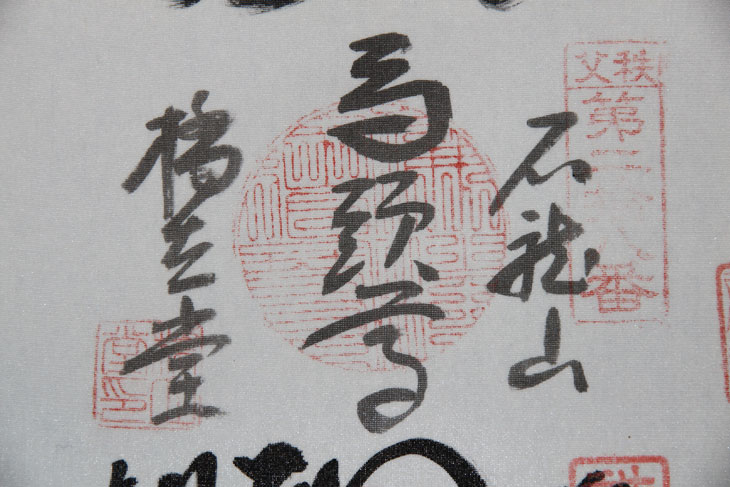 秩父
第二十八番
石龍山
馬頭尊
橋立堂